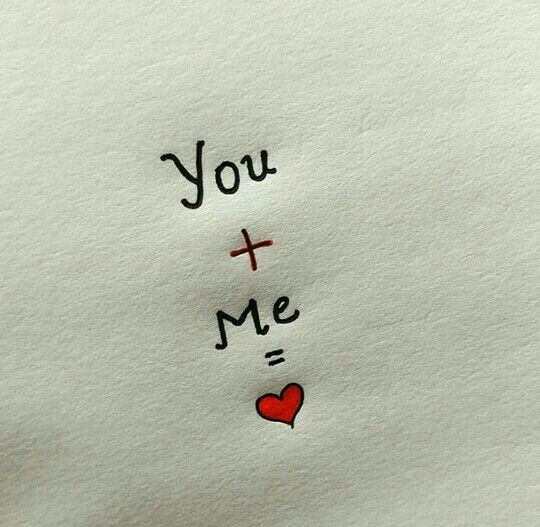 You
+
Me
=
❤